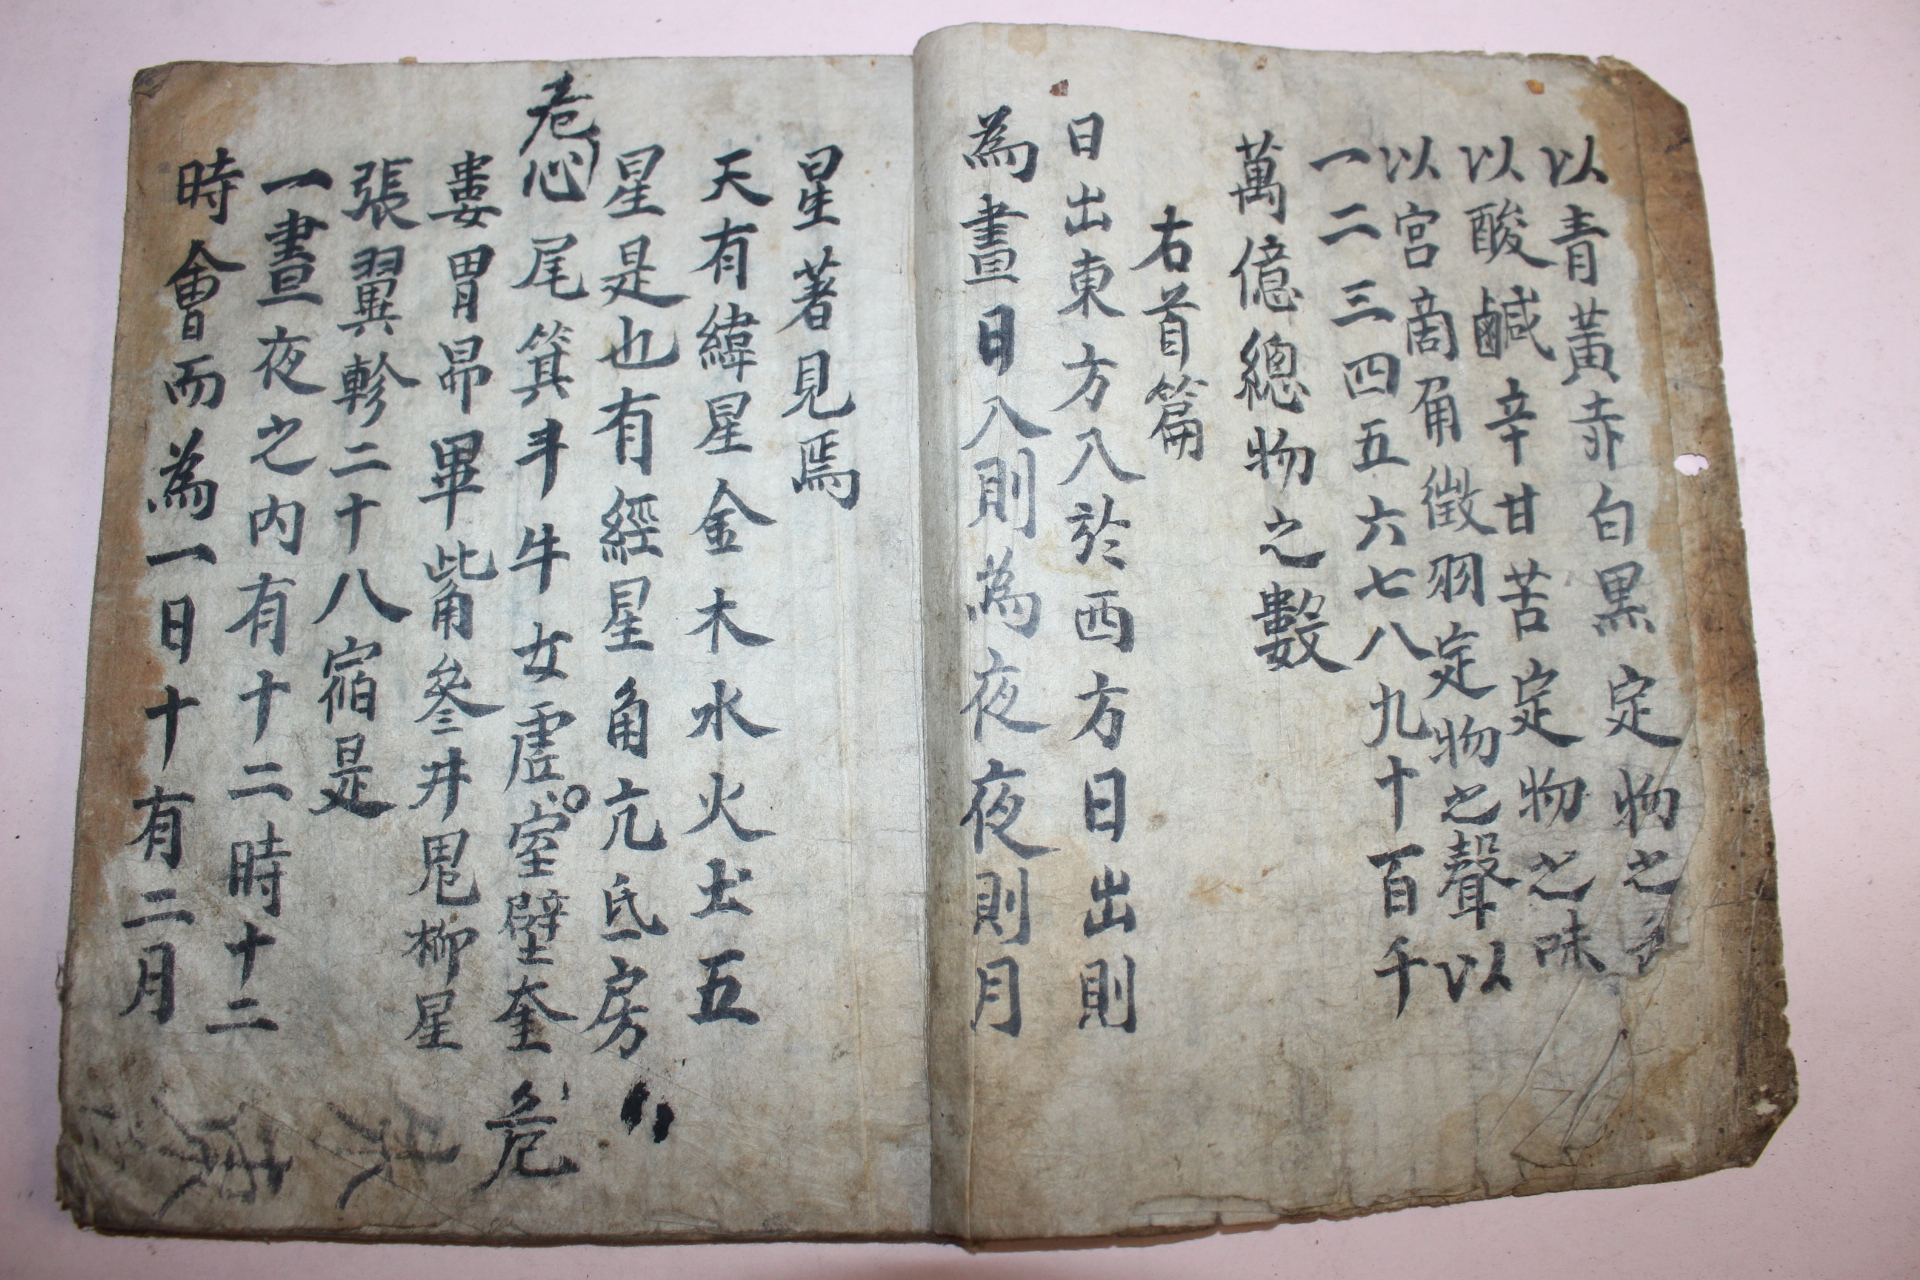 以青黃赤白黑定物之色
以酸鹹辛甘苦定物之味
以宮商角徵羽定物之聲以
一二三四五六七八九十百千
萬億總物之數
右首篇
日出東方入於西方日出則
為晝日入則為夜夜則月
星著見焉
天有緯星金木水火土五
星是也有經星角亢氐房
危心尾箕斗牛女虛室壁奎危
婁胃昴畢觜參井鬼柳星
張翼軫二十八宿是
一晝夜之內有十二時十二
時會而為一日十有二月